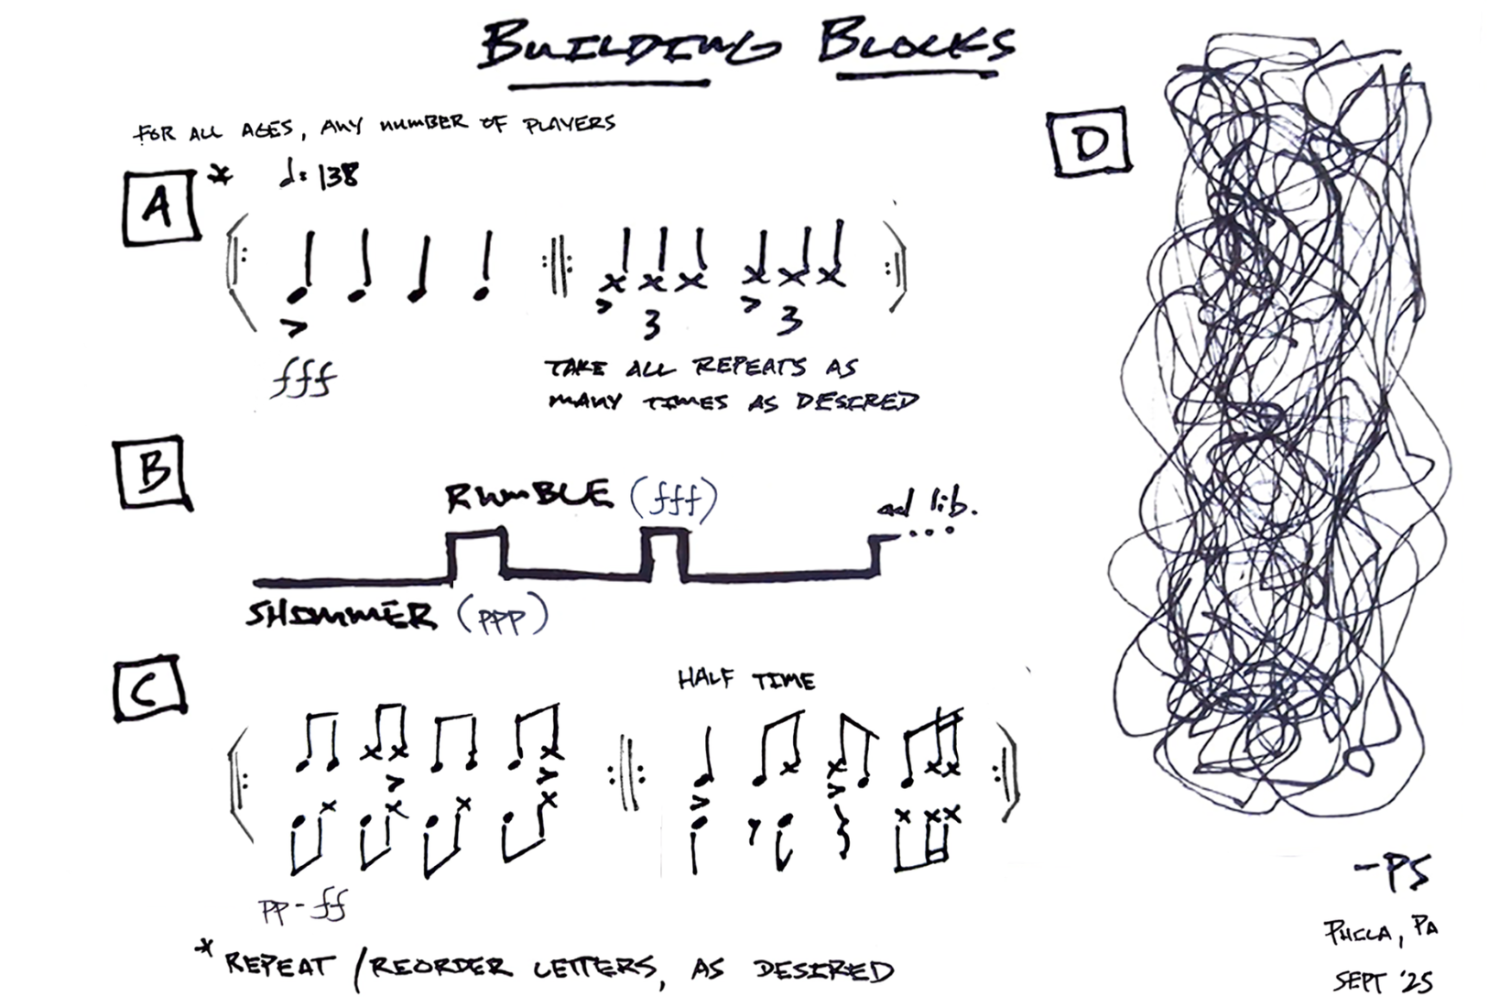 BUILDING BLOCKS
FOR ALL AGES, ANY NUMBER OF PLAYERS
A * 𝅗𝅥 = 138
> > >
3 3
fff
TAKE ALL REPEATS AS
MANY TIMES AS DESIRED
B
RUMBLE (fff)
ad lib.
...
SHIMMER (ppp)
C
HALF TIME
pp - ff
* REPEAT / REORDER LETTERS, AS DESIRED
D
- PS
PHILA, PA
SEPT '25